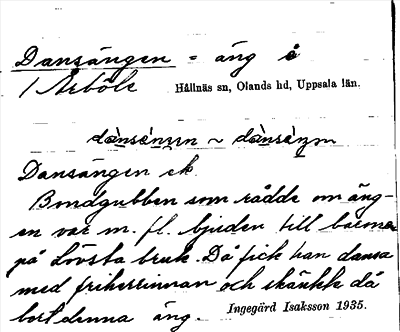 Dansängen = äng å
1 Årböle Hållnäs sn, Olands hd, Uppsala län.
dànsǽŋən ~ dànsǽŋən
Dansängen ek.
Bondgubben som rådde om äng-
en var m. fl. bjuden till baronen
på Lövsta bruk. Då fick han dansa
med friherrinnan och skänkte då
bort denna äng. Ingegärd Isaksson 1935.